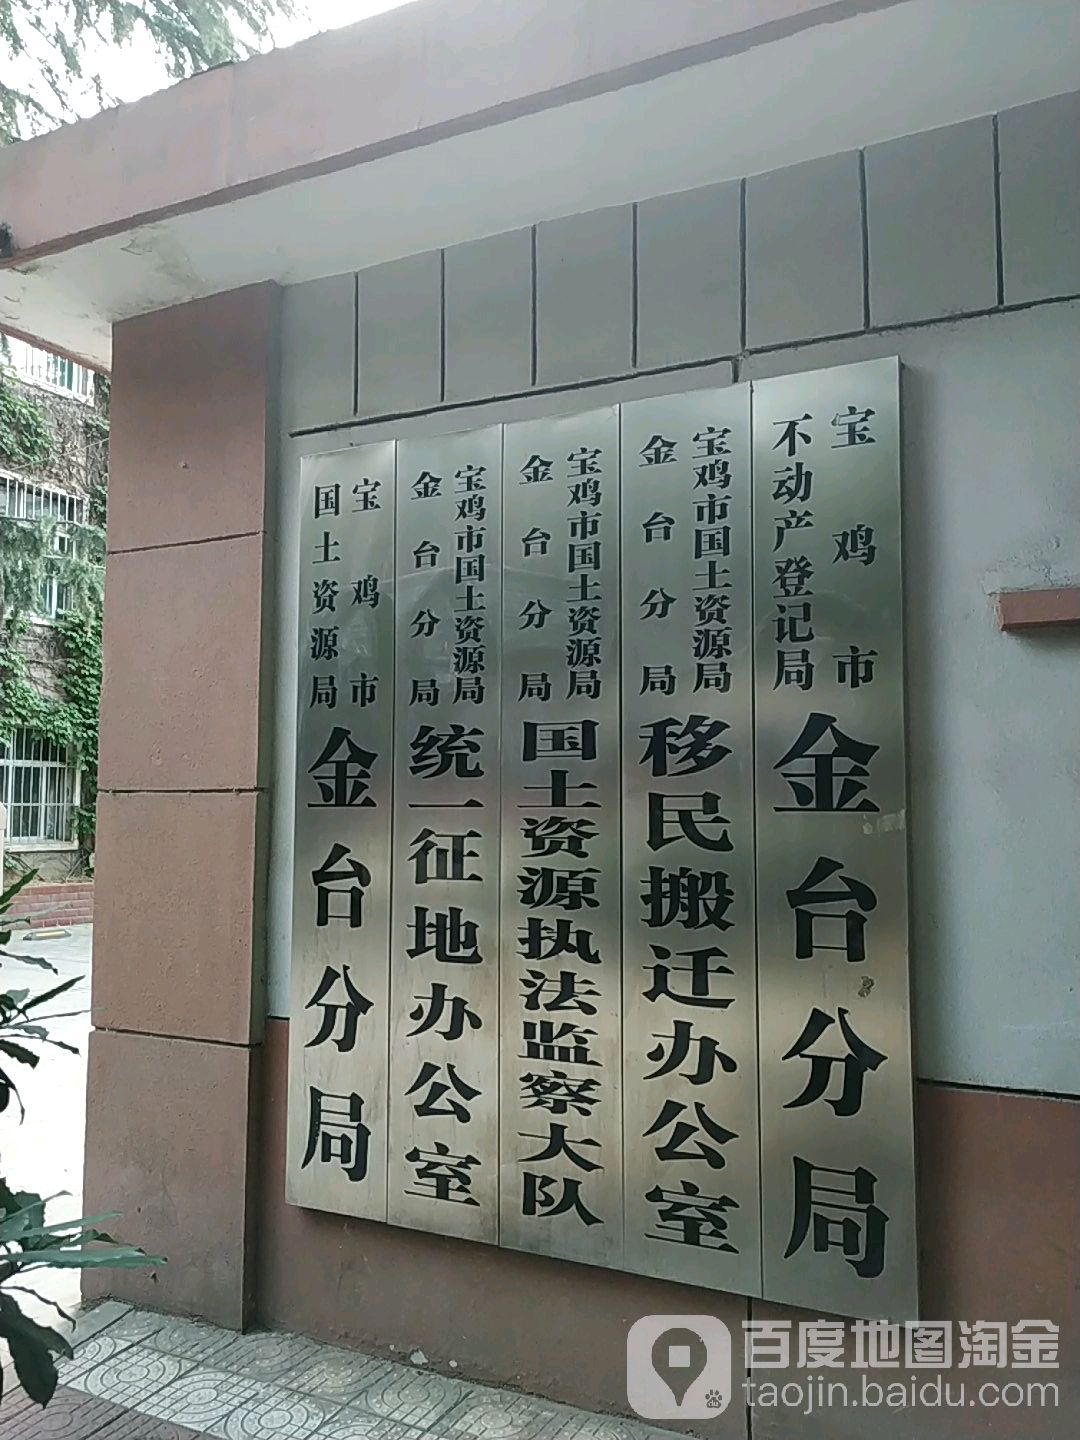 宝鸡市
不动产登记局
金台分局
宝鸡市国土资源局
金台分局
移民搬迁办公室
宝鸡市国土资源局
金台分局
国土资源执法监察大队
宝鸡市国土资源局
金台分局
统一征地办公室
宝鸡市
国土资源局
金台分局
百度地图淘金
taojin.baidu.com